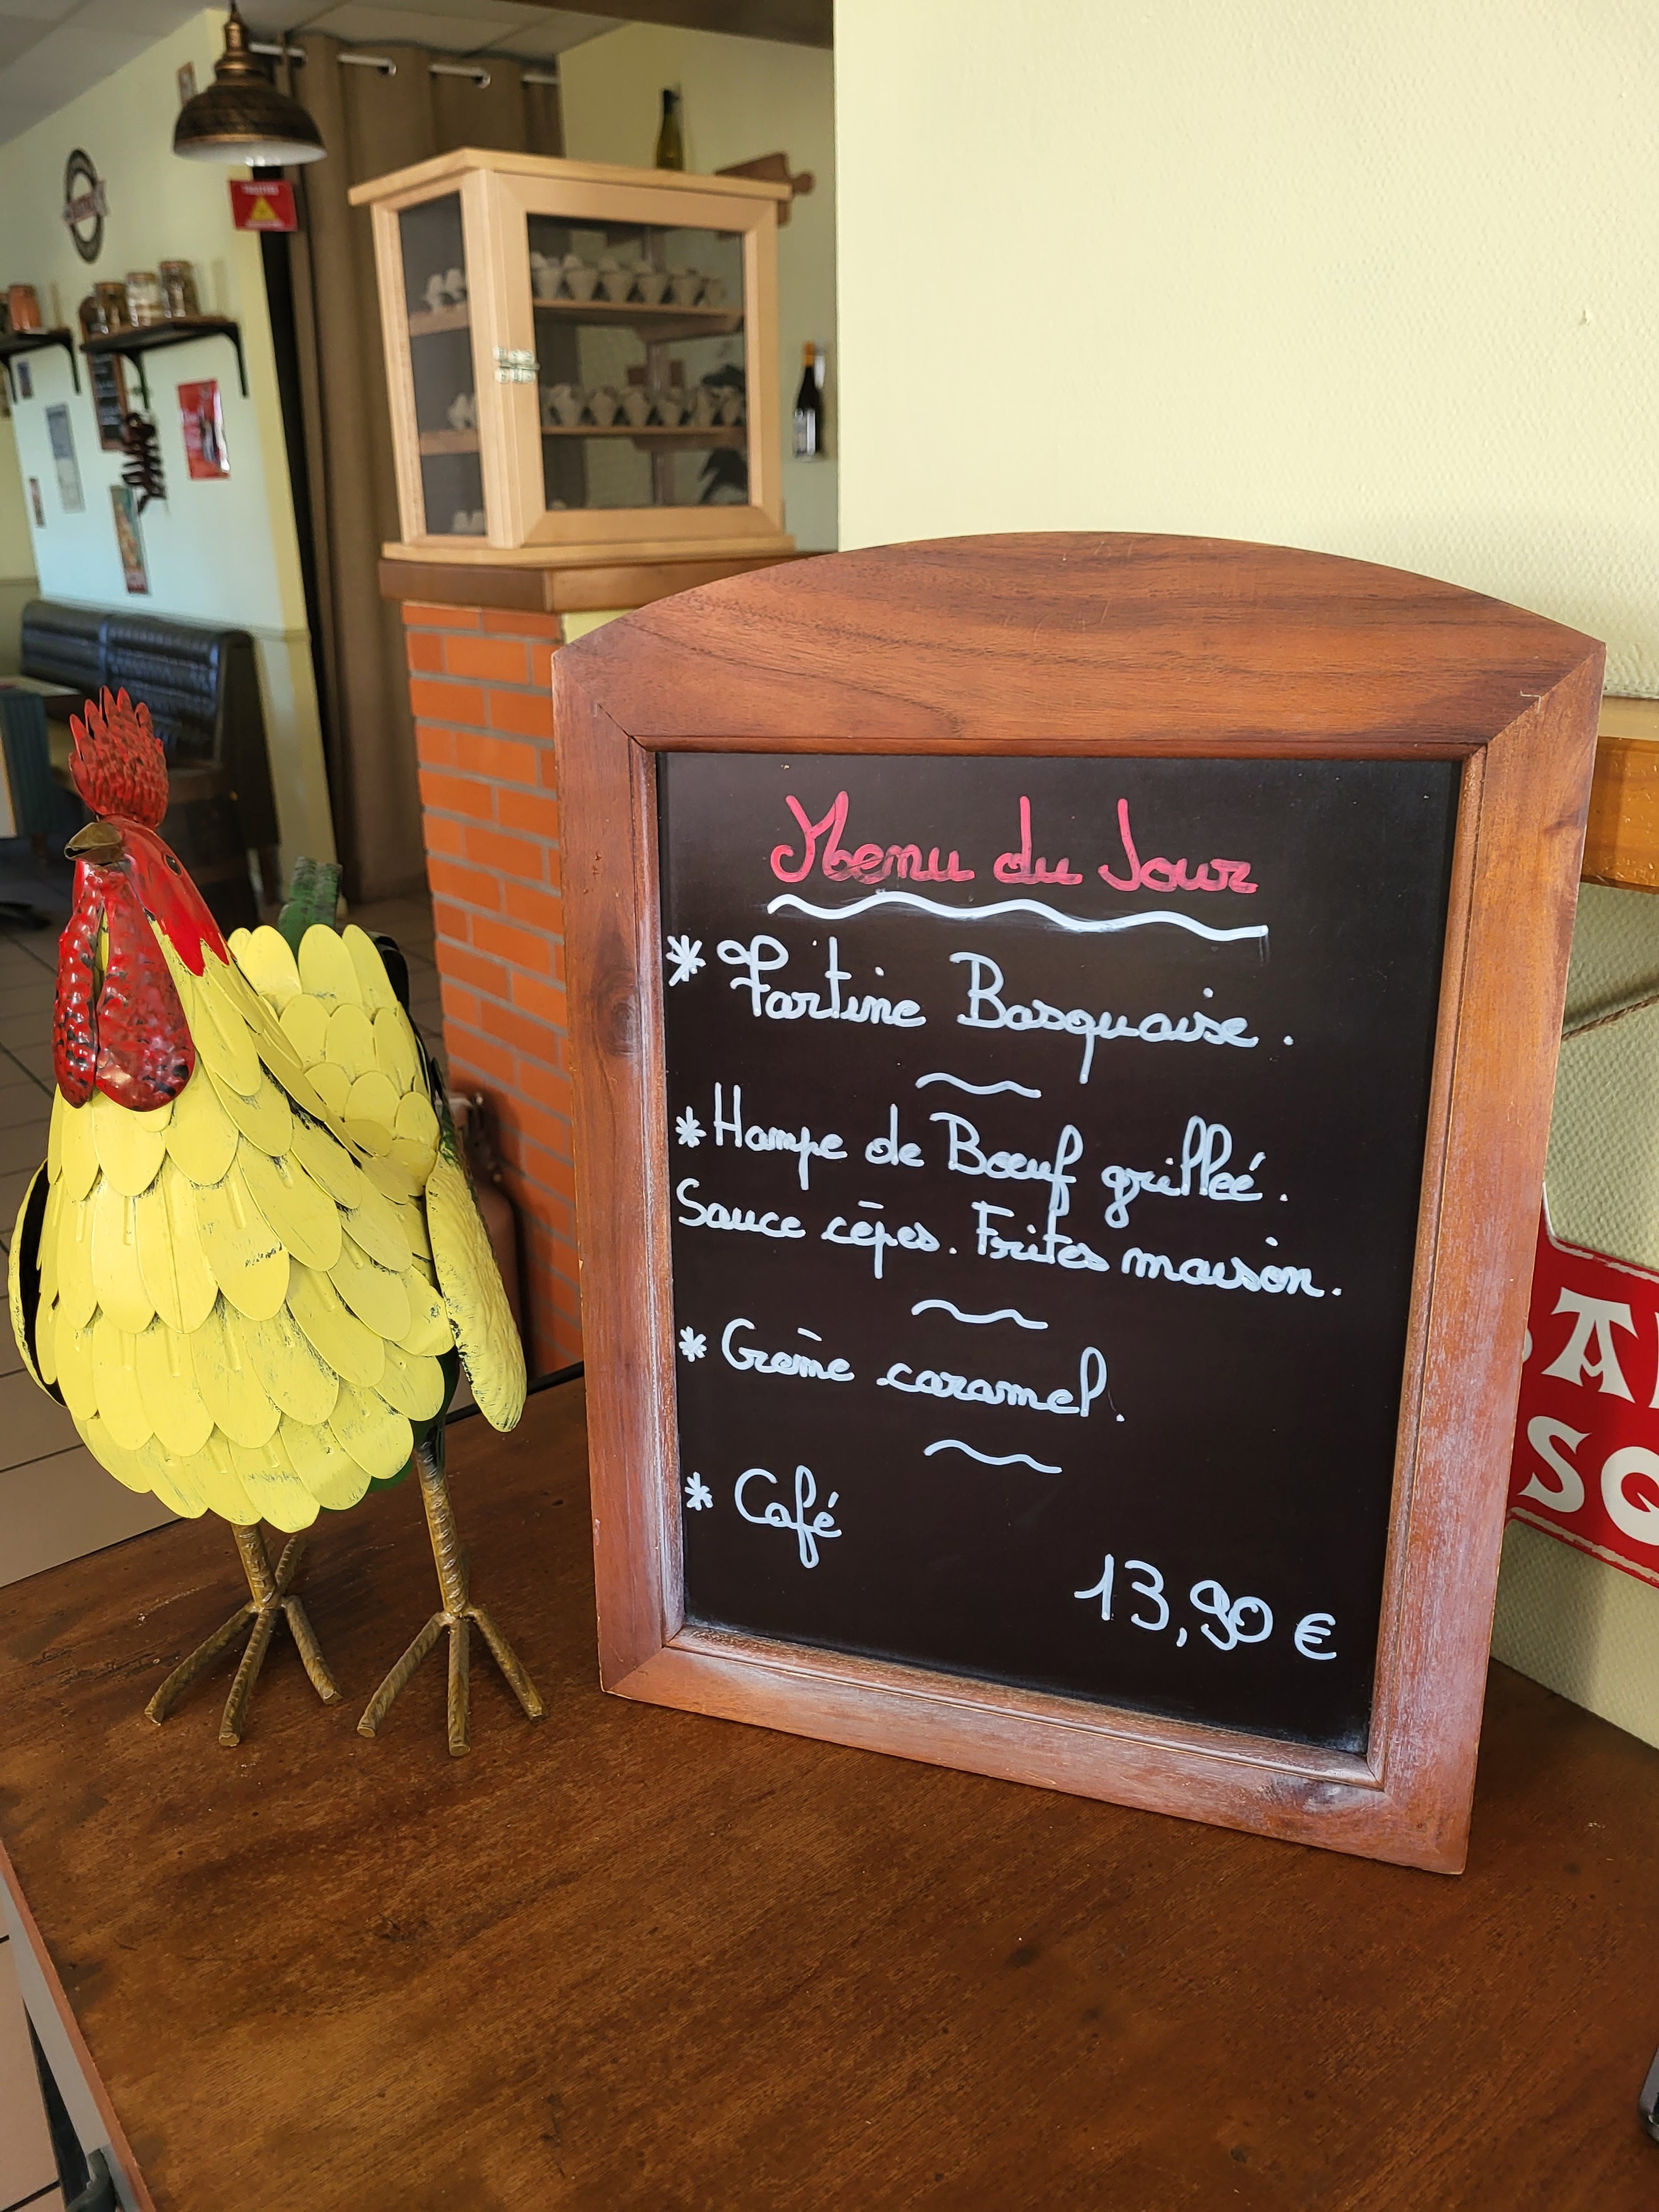 Menu du Jour
* Tartine Basquaise.
* Hampe de Boeuf grilleé.
Sauce cèpes. Frites maison.
* Crème caramel.
* Café
13,90 €